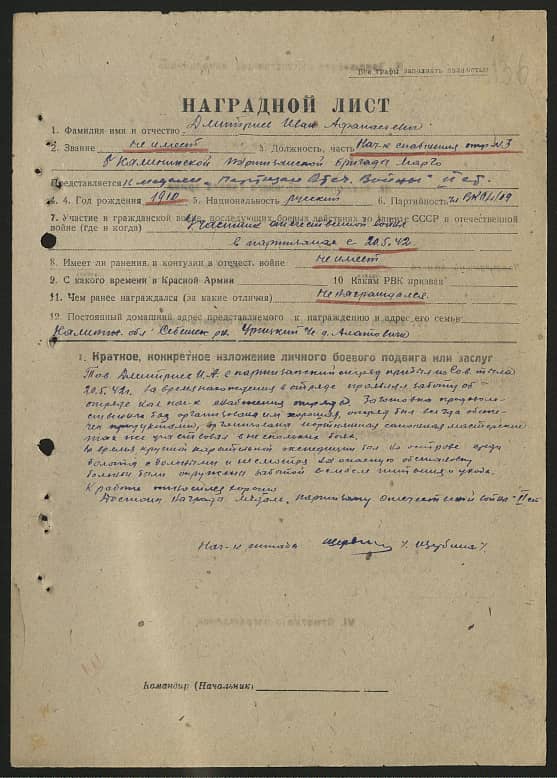 Все графы заполнять полностью
НАГРАДНОЙ ЛИСТ
1. Фамилия имя и отчество Дмитриев Иван Афанасиевич
2. Звание Не имеет 3. Должность, часть Нач-к снабжения отр. N.3
8 Калининской партизанской бригады Марго
Представляется К медали "Партизан Отеч. Войны" II ст.
4. 4. Год рождения 1910 5. Национальность русский 6. Партийность
7. Участие в гражданской войне, последующих боевых действиях по защите СССР и отечественной
войне (где и когда) Участник отечественной войны
в партизанах с 20.5.42
8. Имеет ли ранения и контузии в отечест. войне не имеет
9. С какого времени в Красной Армии 10 Каким РВК призван
11. Чем ранее награждался (за какие отличия) Не награждался.
12. Постоянный домашний адрес представляемого к награждению и адрес его семьи
Калинин. обл Себежск рн. д.
I. Краткое, конкретное изложение личного боевого подвига или заслуг
Тов. Дмитриев И.А. в партизанский отряд прибыл из Сов. тыла
20.5.42г. За время нахождения в отряде проявлял заботу об
отряде как нач-к снабжения отряда. Заготовка продоволь-
ствия им была организована хорошая, отряд был всегда обеспе-
чен продуктами, организована портняжная сапожная мастерские
так же участвовал в нескольких боях.
Во время крупной карательной экспедиции был на острове среди
болота с больными и несмотря на опасную обстановку
больные были окружены заботой в смысле питания и ухода.
К работе относился хорошо
Достоин награды медали партизану отечественной войны "II ст
Нач-к штаба
Командир (Начальник)